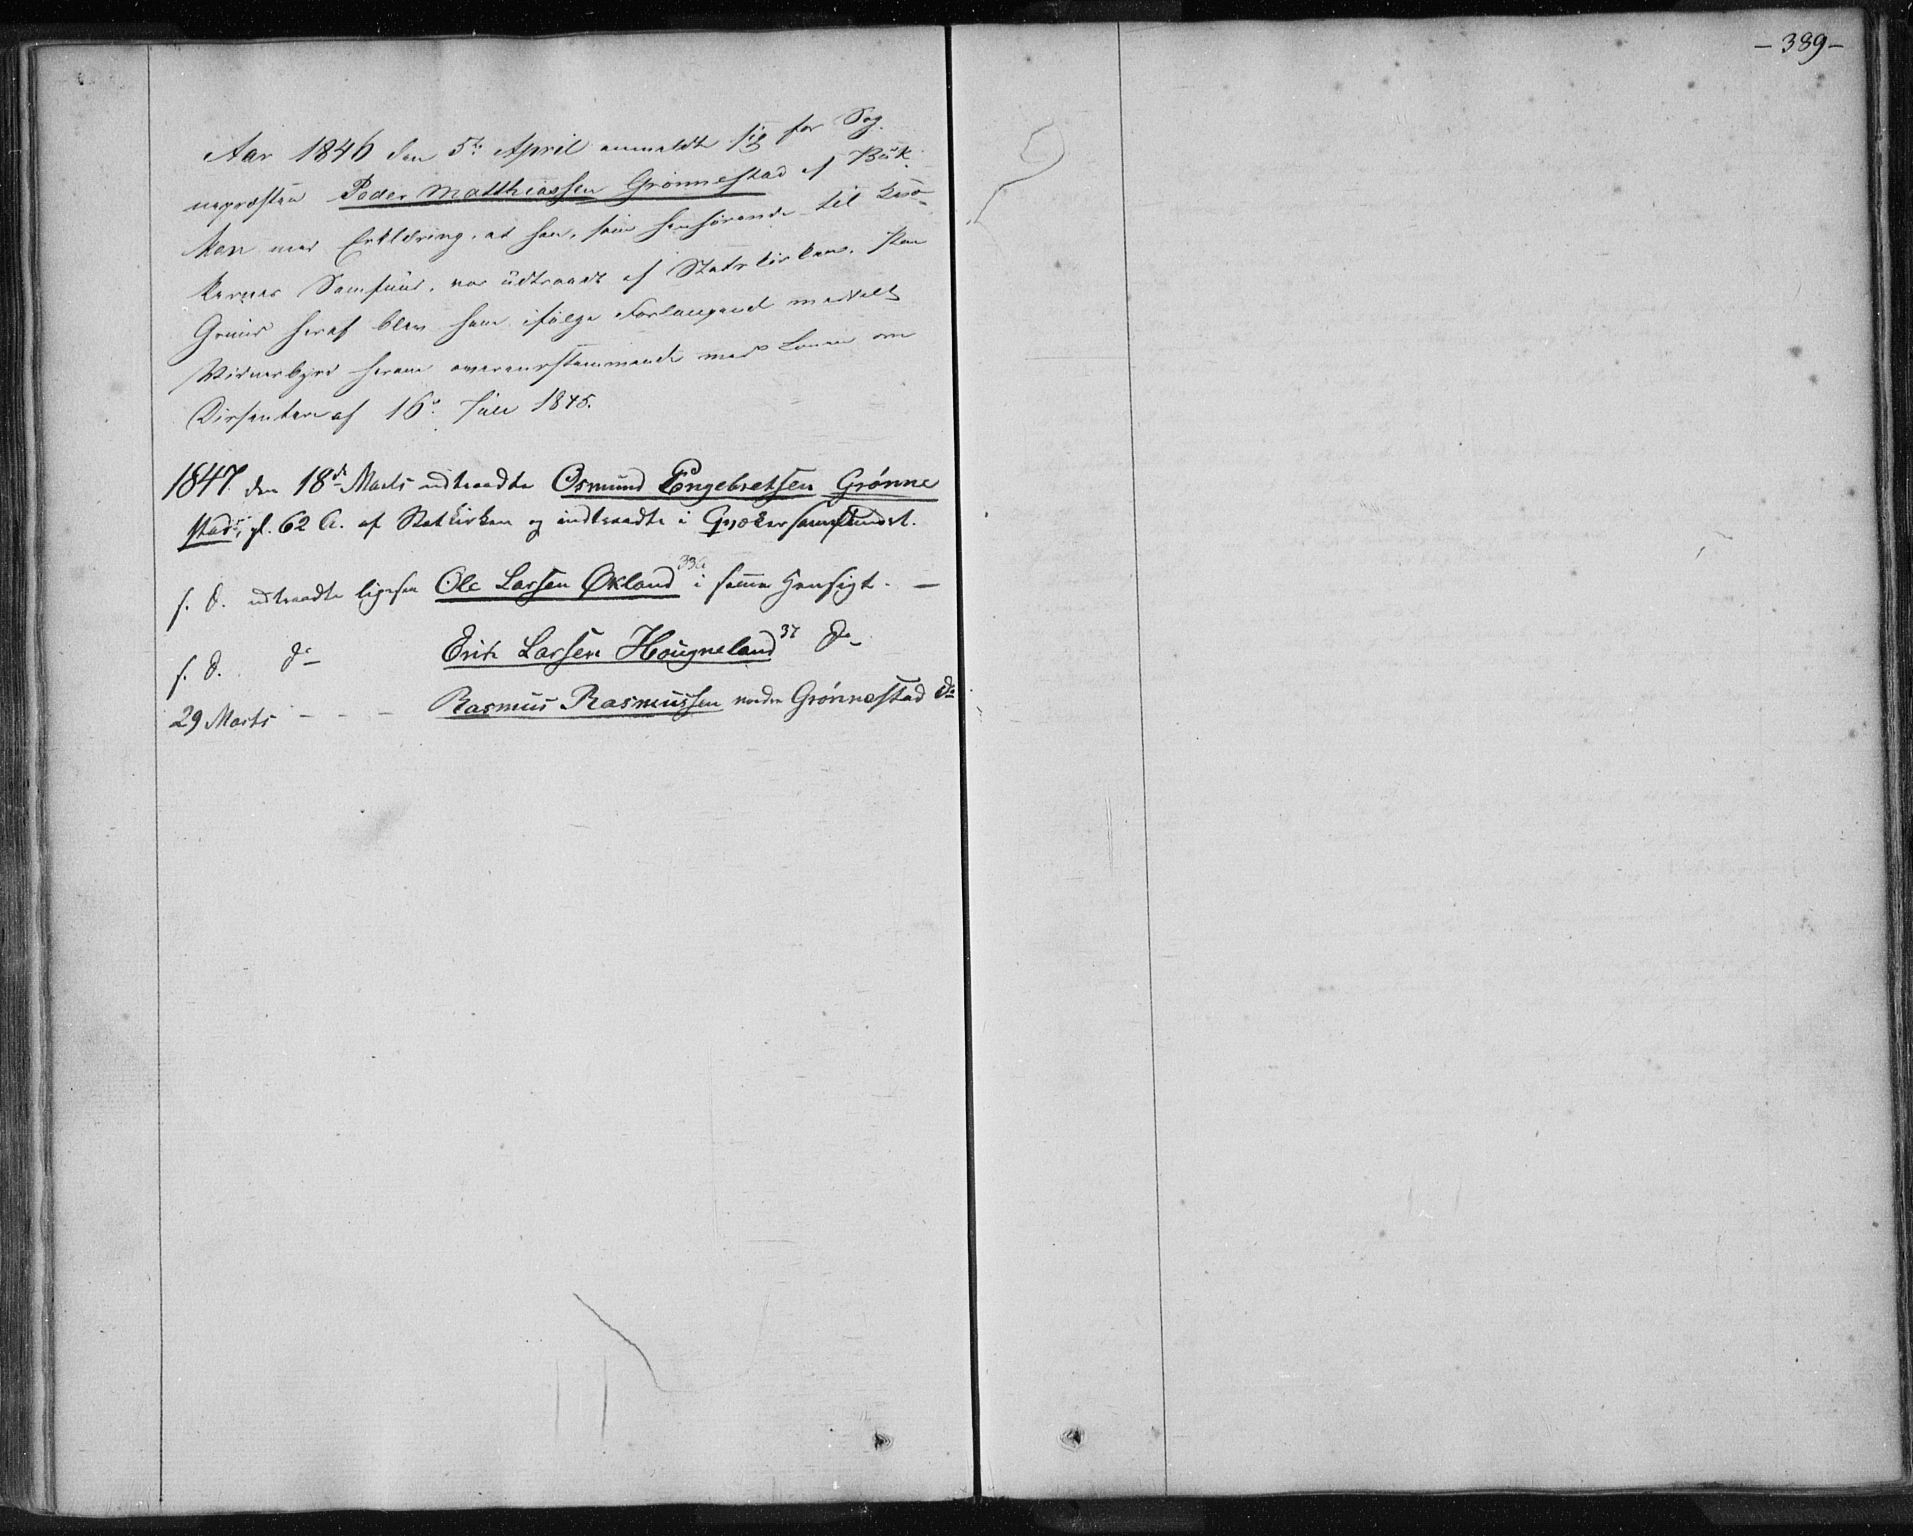 - 389 -
Aar 1846 den 5te April anmeldte sig for Sog-
nepræsten Peder Matthiassen Grønnestad af Buk-
ken med Erklæring, at han, som henhørende til Kvæ-
kernes Samfund, var udtraadt af Statskirken. Paa
Grund heraf blev ham ifølge Forlangend meddelt
Vidnesbyrd herom overensstemmende med Loven om
Dissentere af 16de Juli 1845.
1847 den 18de Marts udtraadte Osmund Engebretsen Grønne
stad, gl. 62 A. af Statkirken og indtraadte i Qvækersamfundet.
s. D. udtraadte ligesaa Ole Larsen Økland i samme Hensigt. —
s. D. do Erik Larsen Hougneland 37 do
29 Marts - - - Rasmus Rasmussen nedre Grønnestad do